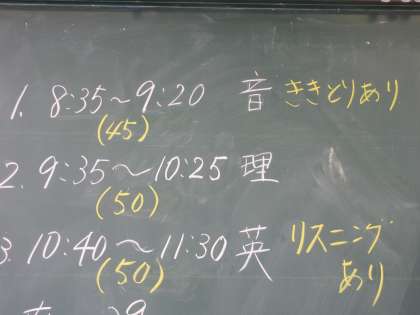 1. 8:35〜9:20 音 ききとりあり
(45)
2. 9:35〜10:25 理
(50)
3. 10:40〜11:30 英 リスニング
(50) あり